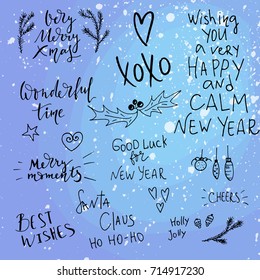 Very
Merry
Xmas
XOXO
Wishing
YOU
a very
HAPPY
and
CALM
NEW YEAR
Wonderful
time
GOOD LUCK
for
NEW YEAR
Merry
moments
CHEERS
Santa
CLAUS
HO-HO-HO
BEST
WISHES
Holly
Jolly
shutterstock.com · 714917230